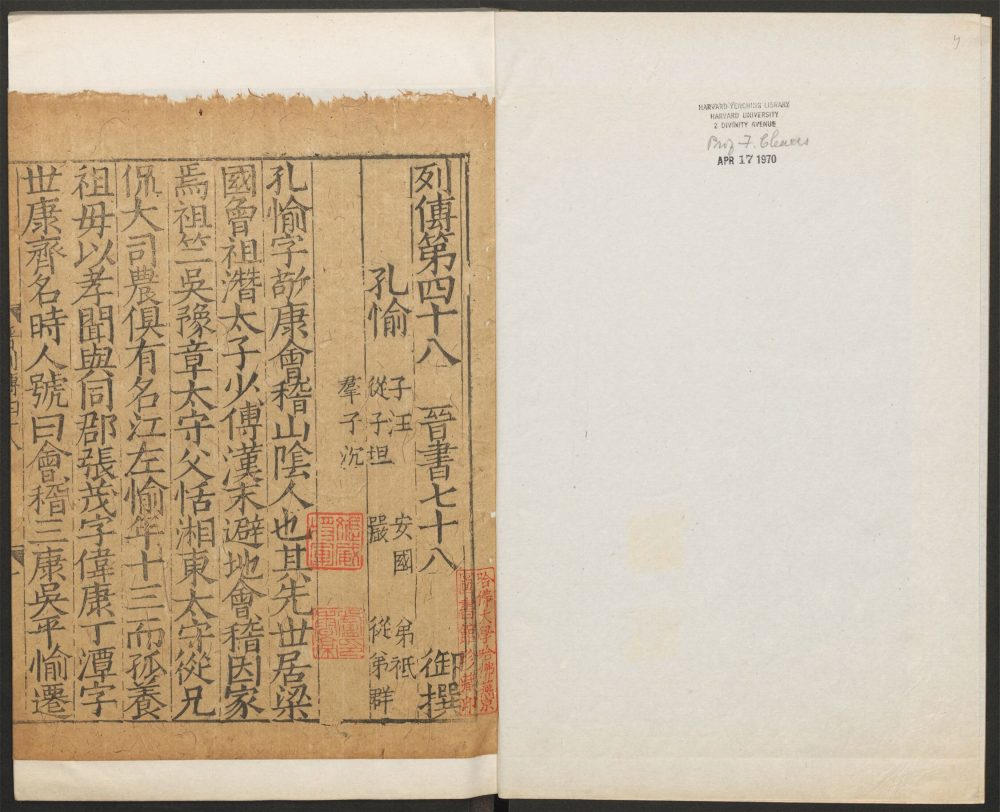 HARVARD-YENCHING LIBRARY
HARVARD UNIVERSITY
2 DIVINITY AVENUE
Prof. F. Cleaves
APR 17 1970
列傳第四十八 晉書七十八 御撰
孔愉 子汪 安國 弟祗
從子坦 嚴 從弟群
羣子沉
孔愉字敬康會稽山陰人也其先世居梁
國曾祖潛太子少傅漢末避地會稽因家
焉祖竺吳豫章太守父恬湘東太守從兄
侃大司農俱有名江左愉年十三而孤養
祖母以孝聞與同郡張茂字偉康丁潭字
世康齊名時人號曰會稽三康吳平愉遷
哈佛大學哈佛燕京
圖書館珍藏印